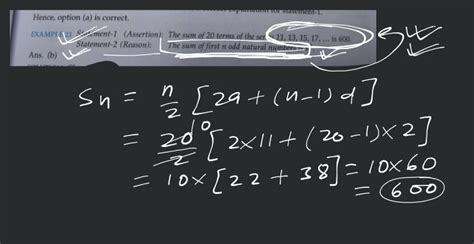 Hence, option (a) is correct.
EXAMPLE 21 Statement-1 (Assertion): The sum of 20 terms of the series 11, 13, 15, 17, ... is 600.
Statement-2 (Reason): The sum of first n odd natural numbers
Ans. (b)
Sn = n/2 [2a + (n-1) d]
= 20/2 10 [2×11 + (20-1)×2]
= 10×[22 + 38] = 10×60
= 600